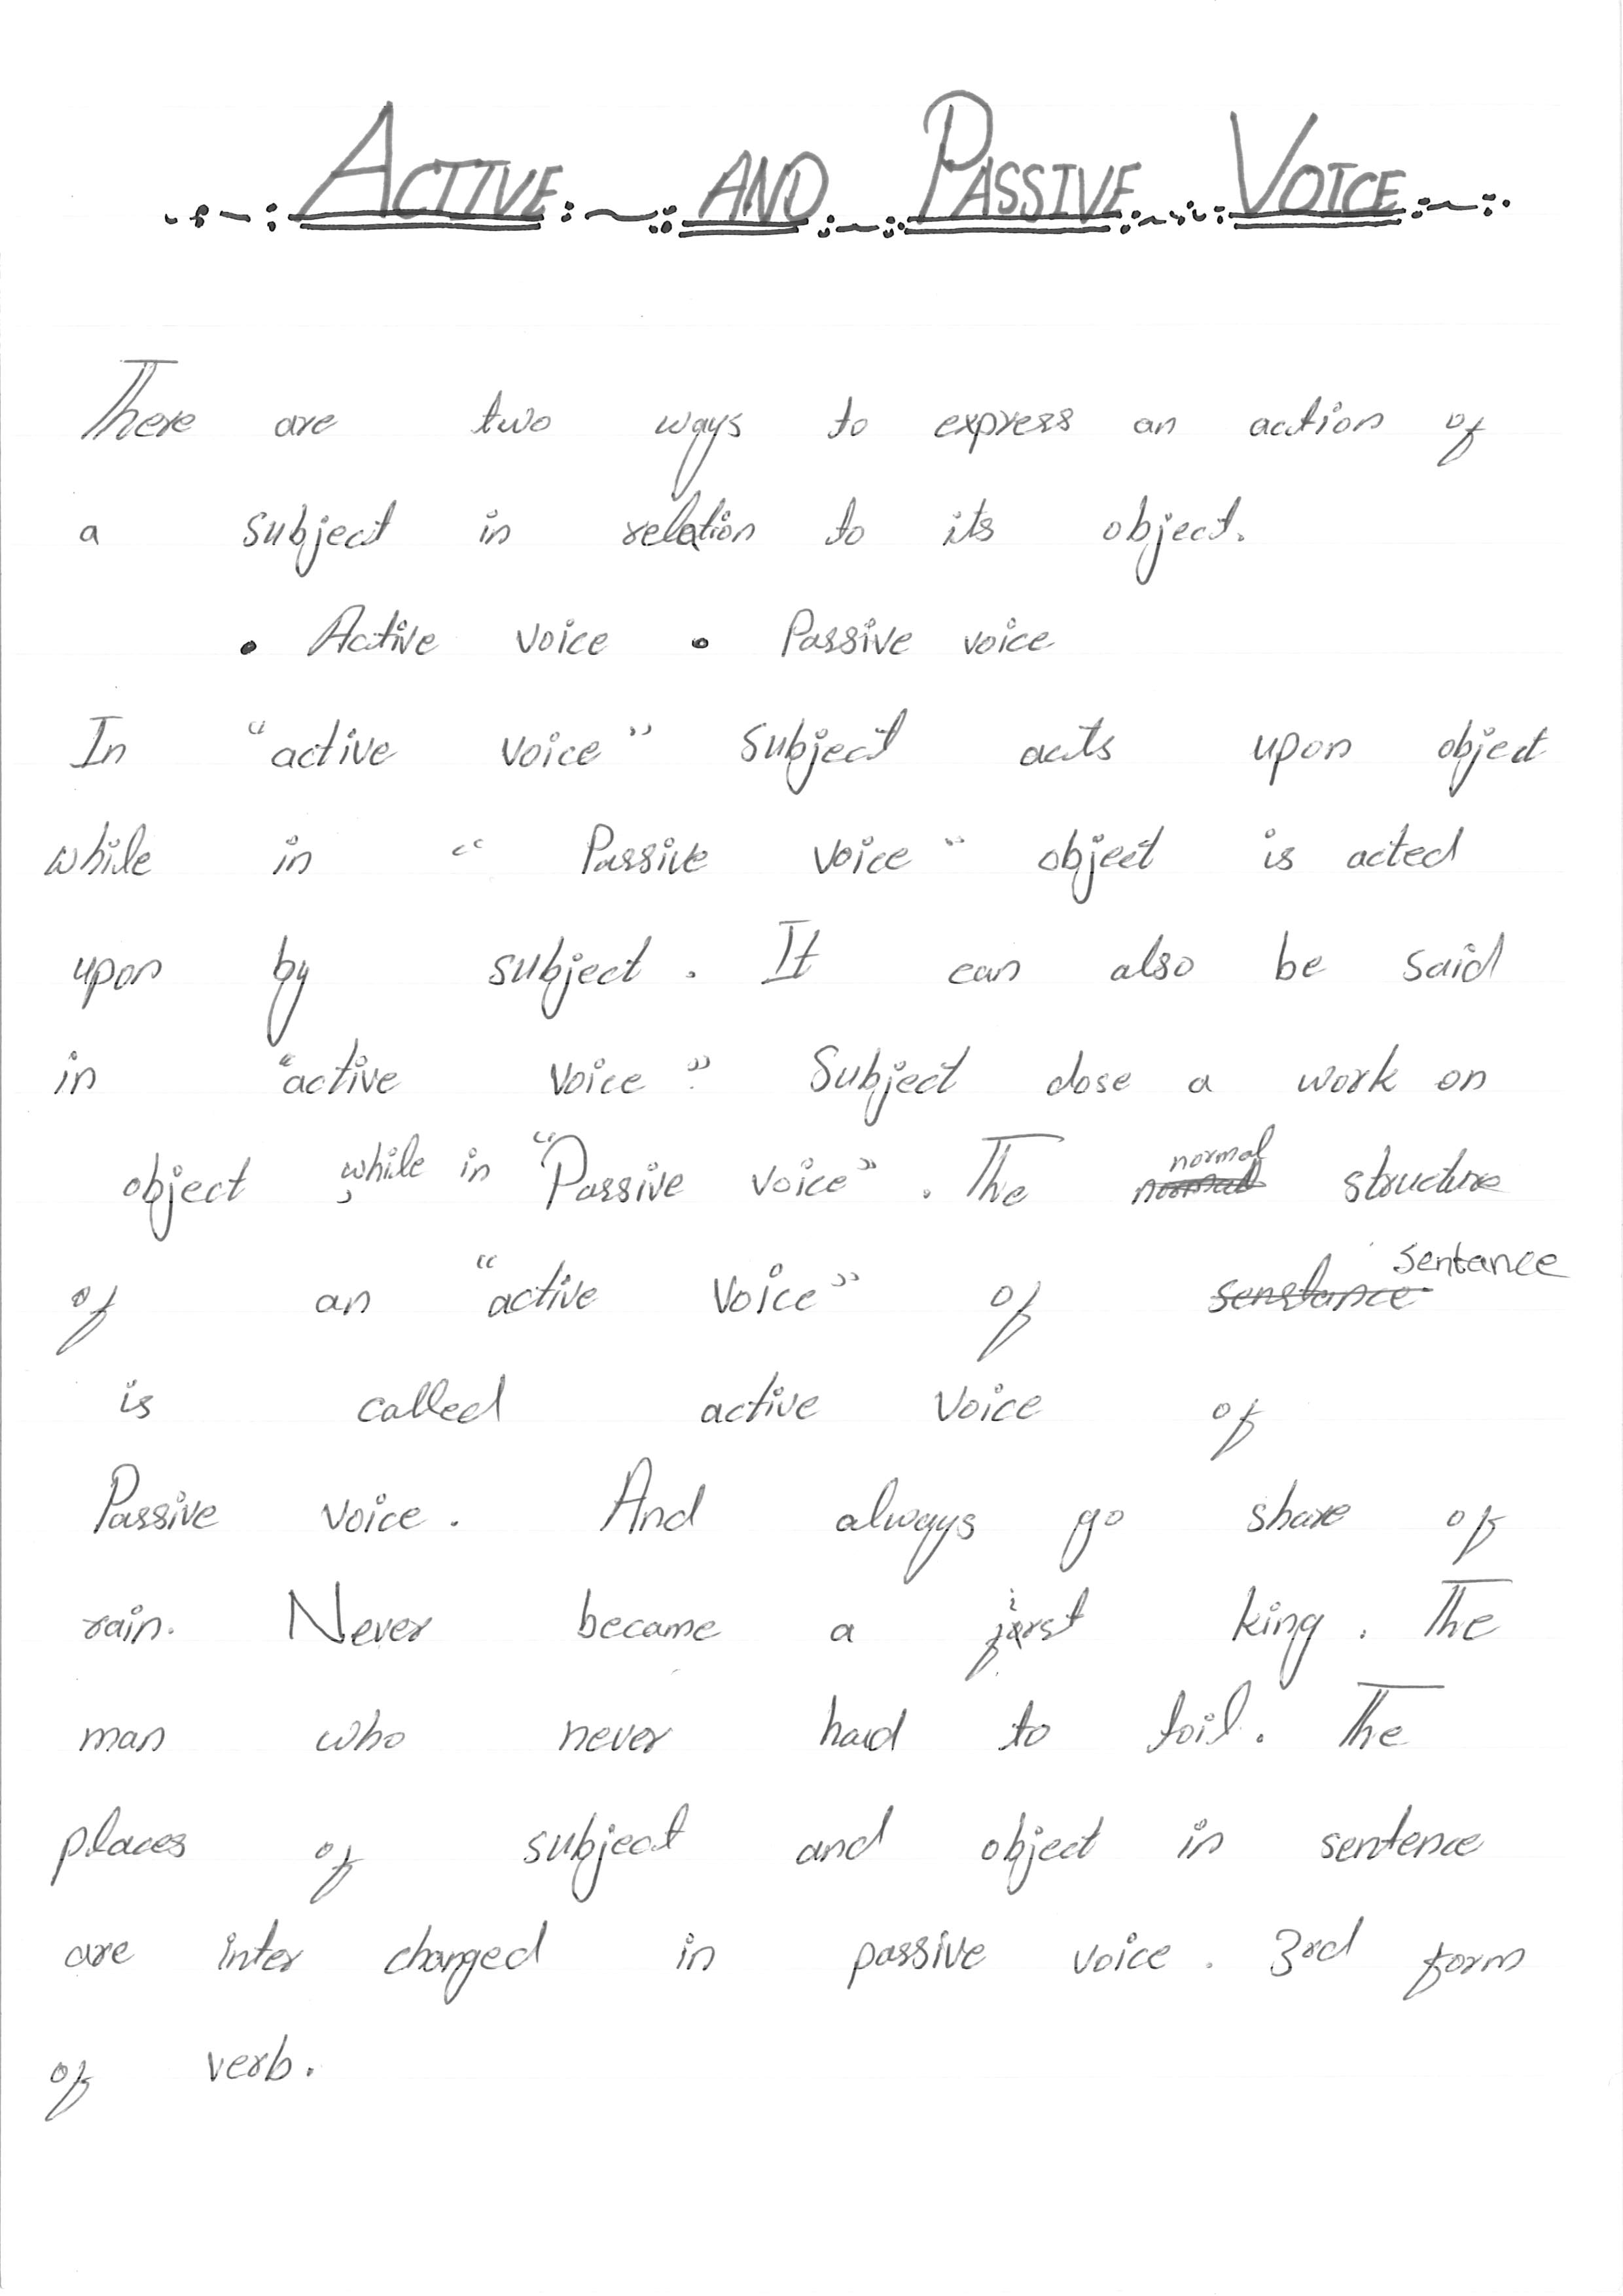 ACTIVE AND PASSIVE VOICE
There are two ways to express an action of
a subject in relation to its object.
• Active voice • Passive voice
In "active voice" subject acts upon object
while in "Passive voice" object is acted
upon by subject. It can also be said
in "active voice". Subject dose a work on
object, while in "Passive voice". The normal normal structure
of an "active voice" of senstance sentance
is called active voice of
Passive voice. And always go share of
rain. Never became a first king. The
man who never had to toil. The
places of subject and object in sentence
are inter changed in passive voice. 3rd form
of verb.